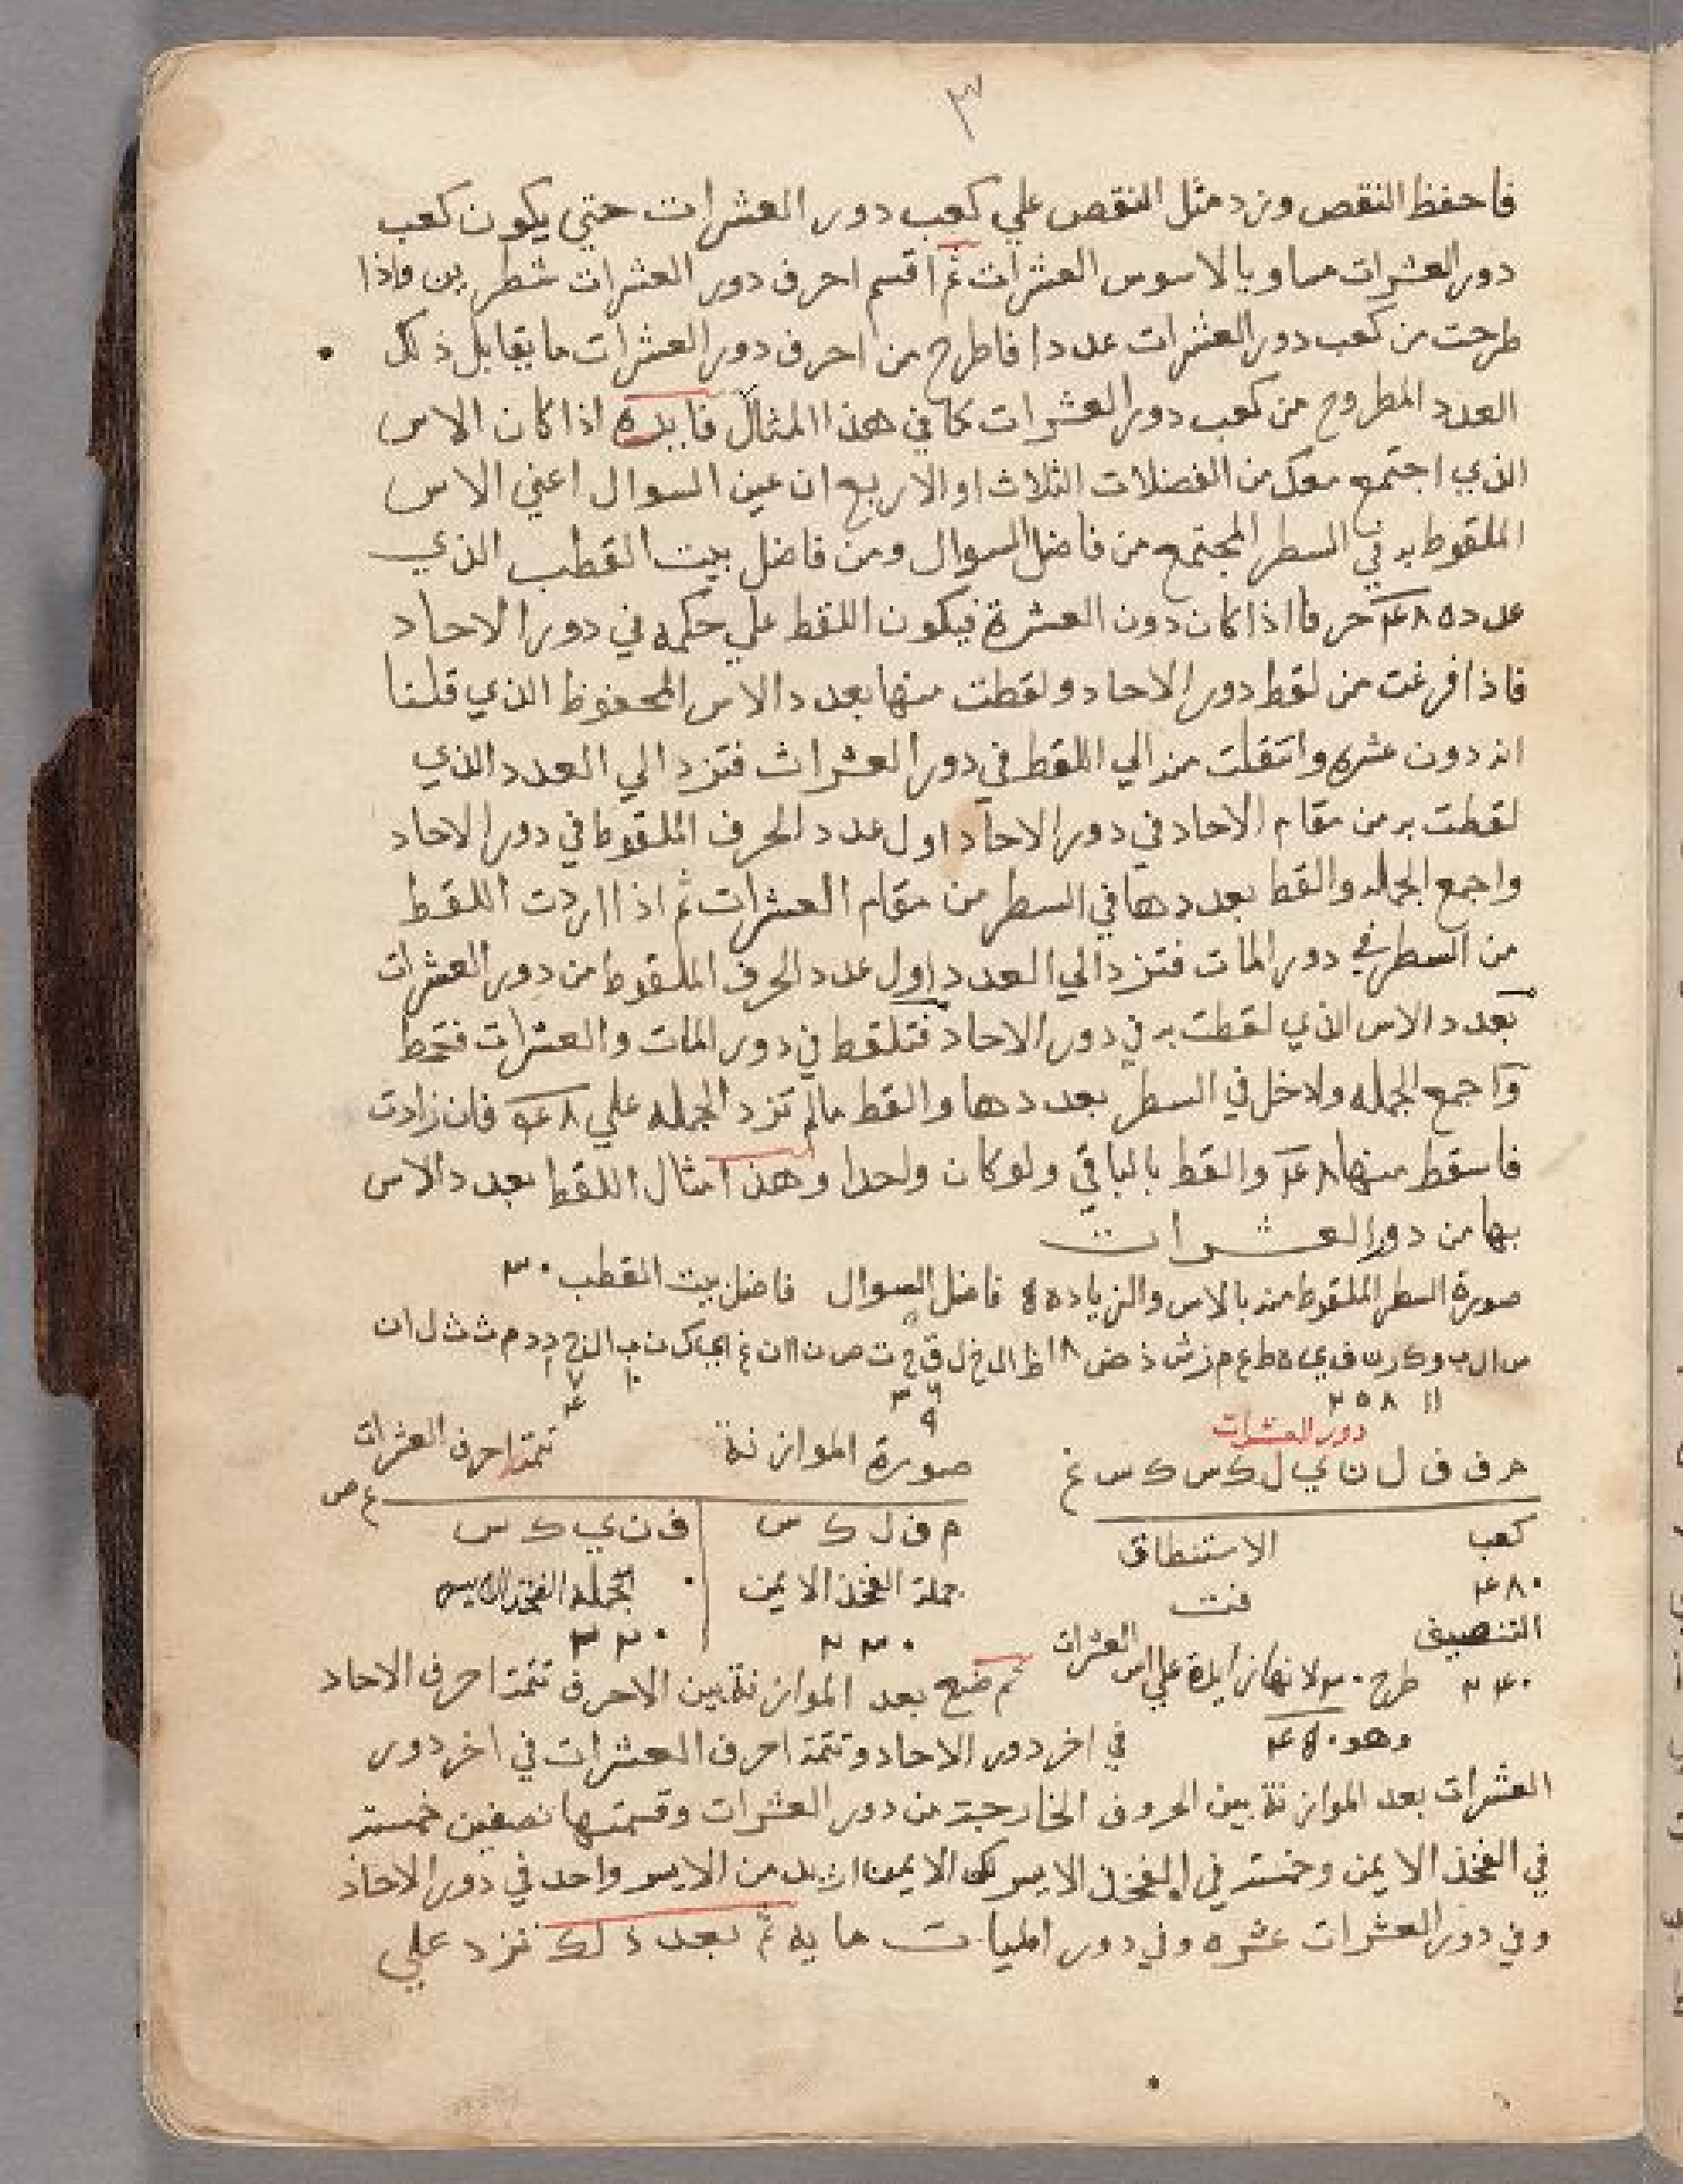 ٣
فاحفظ النقص وزد مثل النقص علي كعب دور العشرات حتي يكون كعب
دور العشرات مساويا لاسوس العشرات ثم اقسم احرف دور العشرات شطرين واذا
طرحت من كعب دور العشرات عددا فاطرح من احرف دور العشرات ما يقابل ذلك
العدد المطروح من كعب دور العشرات كما في هذا المثال فايده اذا كان الاس
الذي اجتمع معك من الفضلات الثلاث او الاربع ان عين السوال اعني الاس
الملقوط به في السطر المجتمع من فاضل السوال ومن فاضل بيت القطب الذي
عدده ٤٨ حرفا اذا كان دون العشرة فيكون اللقط علي حكمه في دور الاحاد
فاذا فرغت من لقط دور الاحاد ولقطت منها بعدد الاس المحفوظ الذي قلنا
انه دون عشره وانتقلت منه الي اللقط في دور العشرات فتزد الي العدد الذي
لقطت به من مقام الاحاد في دور الاحاد اول عدد الحرف الملقوط في دور الاحاد
واجمع الجمله والقط بعددها في السطر من مقام العشرات ثم اذا اردت اللقط
من السطر في دور المات فتزد الي العدد اول عدد الحرف الملقوط من دور العشرات
بعدد الاس الذي لقطت به في دور الاحاد فتلقط في دور المات والعشرات فتحط
واجمع الجمله ولاخل في السطر بعددها والقط مالم تزد الجمله علي ٤٨ فان زادت
فاسقط منها ٤٨ والقط بالباقي ولو كان واحدا وهذا مثال اللقط بعدد الاس
بها من دور العشرات
صورة السطر الملقوط منه بالاس والزياده فاضل السوال فاضل بيت القطب ٣٠
١١ ٨ ٥ ٢
دور العشرات
م ف ف ل ن ي ل ك س ك س غ صورة الموازنة تتمة احرف العشرات
ع ص
كعب الاستنطاق م ف ل ك س ف ن ي ك س
٤٨٠ فت جملة الفخذ الايمن الجمله الفخذ الايسر
التنصيف ٢٣٠
٢٤٠ طرح ٣٠ لانها زايدة علي اس العشرات ثم ضع بعد الموازنة بين الاحرف تتمة احرف الاحاد
وهو ٤٥٠ في اخر دور الاحاد وتتمة احرف العشرات في اخر دور
العشرات بعد الموازنة بين الحروف الخارجة من دور العشرات وقسمتها نصفين خمسة
في الفخذ الايمن وخمسة في الفخذ الايسر لكن الايمن ازيد من الايسر واحد في دور الاحاد
وفي دور العشرات عشره وفي دور الميات مايه ثم بعد ذلك تزد علي